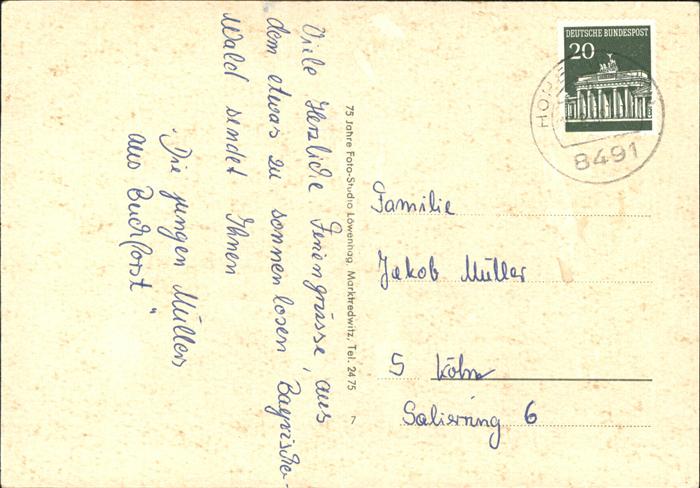 Viele Herzliche Feriengrüsse, aus
dem etwas zu sonnenlosen Bayrischen
Wald sendet Ihnen
"Die jungen Müllers
aus Buchforst"
75 Jahre Foto-Studio Löwenhag, Marktredwitz, Tel. 2475
7
DEUTSCHE BUNDESPOST
20
8491
Familie
Jakob Müller
5 Köln
Salierring 6